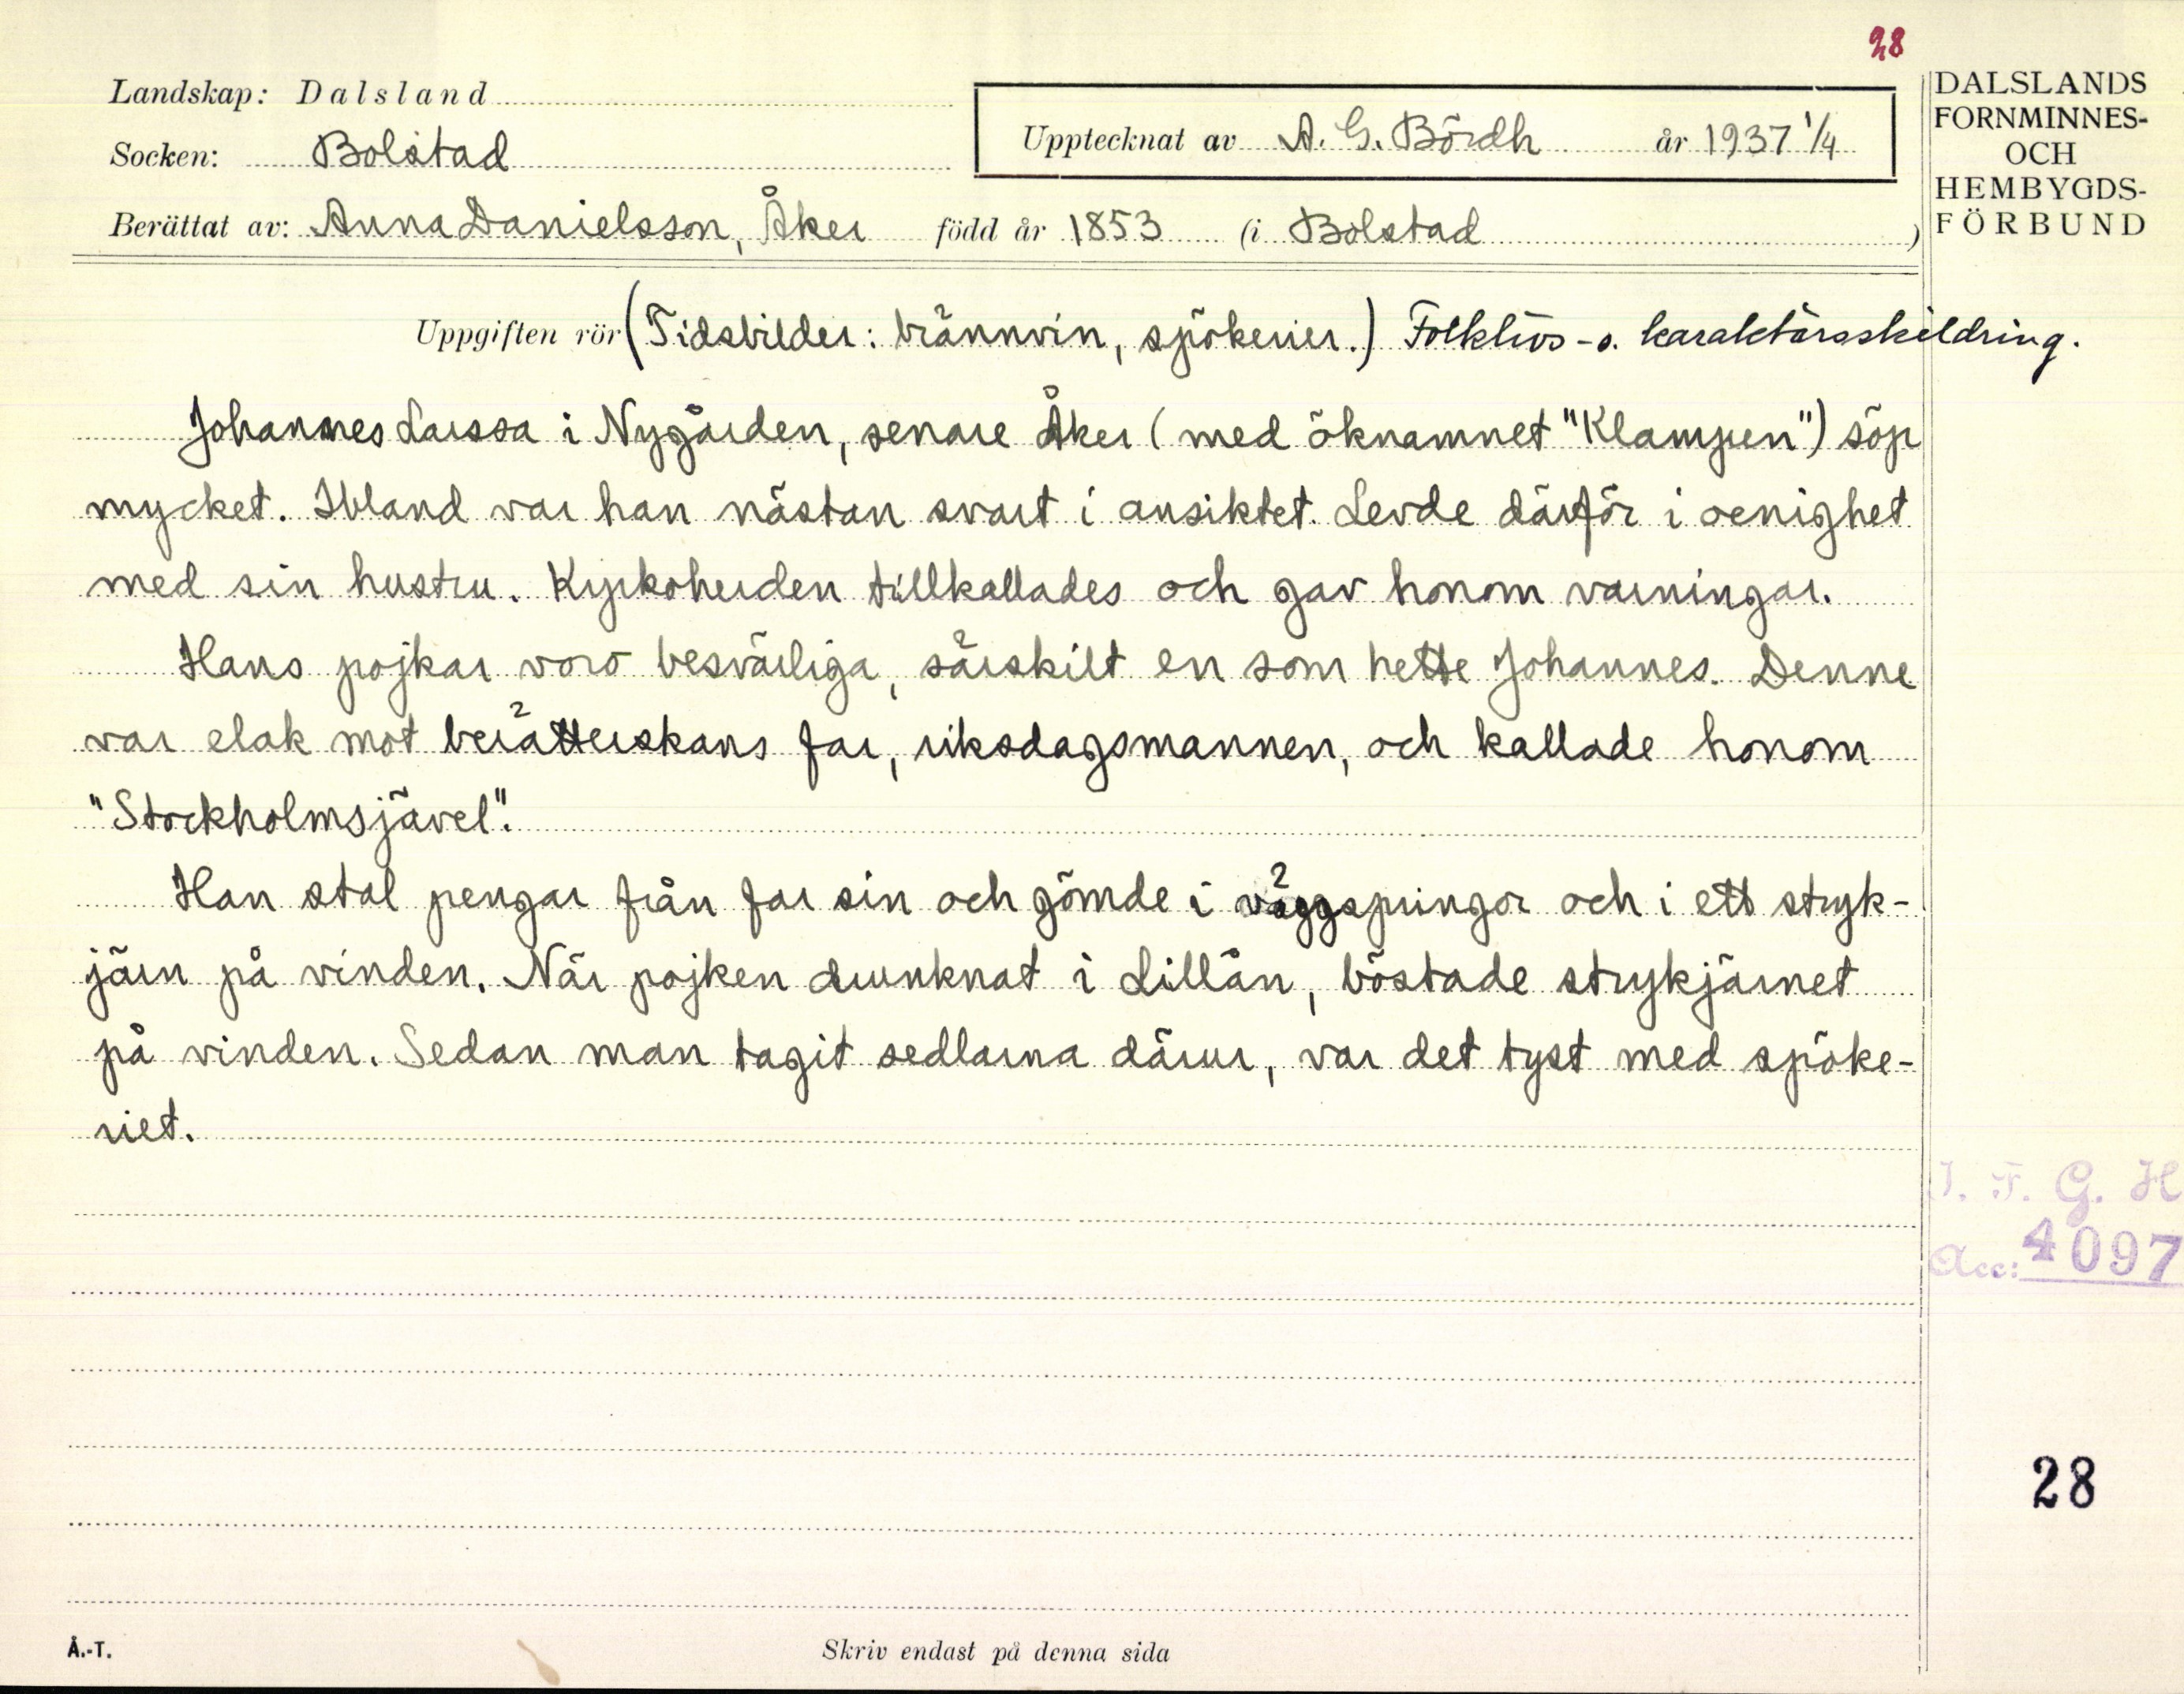 28
Landskap: Dalsland
Socken: Bolstad
Upptecknat av A. G. Bördh år 1937 1/4
Berättat av: Anna Danielsson, Åker född år 1853 (i Bolstad )
DALSLANDS
FORNMINNES-
OCH
HEMBYGDS-
FÖRBUND
Uppgiften rör (Tidsbilder: brännvin, spökerier.) Folklivs- o. karaktärsskildring.
Johannes Larssa i Nygården, senare Åker (med öknamnet "Klampen") söp
mycket. Ibland var han nästan svart i ansiktet. Levde därför i oenighet
med sin hustru. Kyrkoherden tillkallades och gav honom varningar.
Hans pojkar voro besvärliga, särskilt en som hette Johannes. Denne
var elak mot berätterskans far, riksdagsmannen, och kallade honom
"Stockholmsjävel".
Han stal pengar från far sin och gömde i väggspringor och i ett stryk-
järn på vinden. När pojken drunknat i Lillån, böstade strykjärnet
på vinden. Sedan man tagit sedlarna därur, var det tyst med spöke-
riet.
I. F. G. H
Acc: 4097
28
Å.-T.
Skriv endast på denna sida